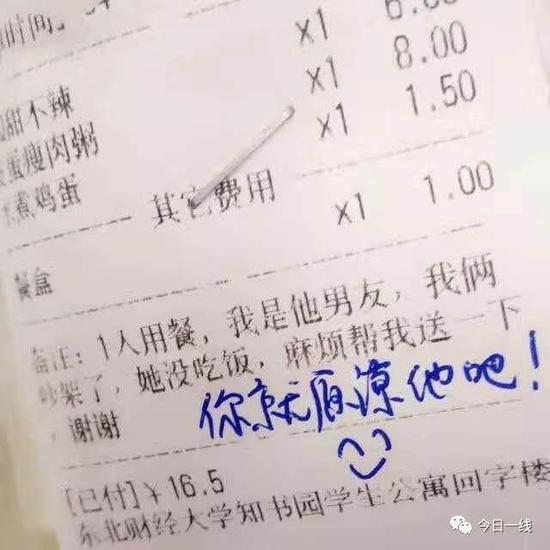 时间:
x1 6.00
甜不辣 x1 8.00
蛋瘦肉粥 x1 1.50
煮鸡蛋
其它费用
餐盒 x1 1.00
备注: 1人用餐, 我是他男友, 我俩
吵架了, 她没吃饭, 麻烦帮我送一下
, 谢谢
你就原谅他吧!
[已付] ¥ 16.5
东北财经大学知书园学生公寓回字楼
今日一线